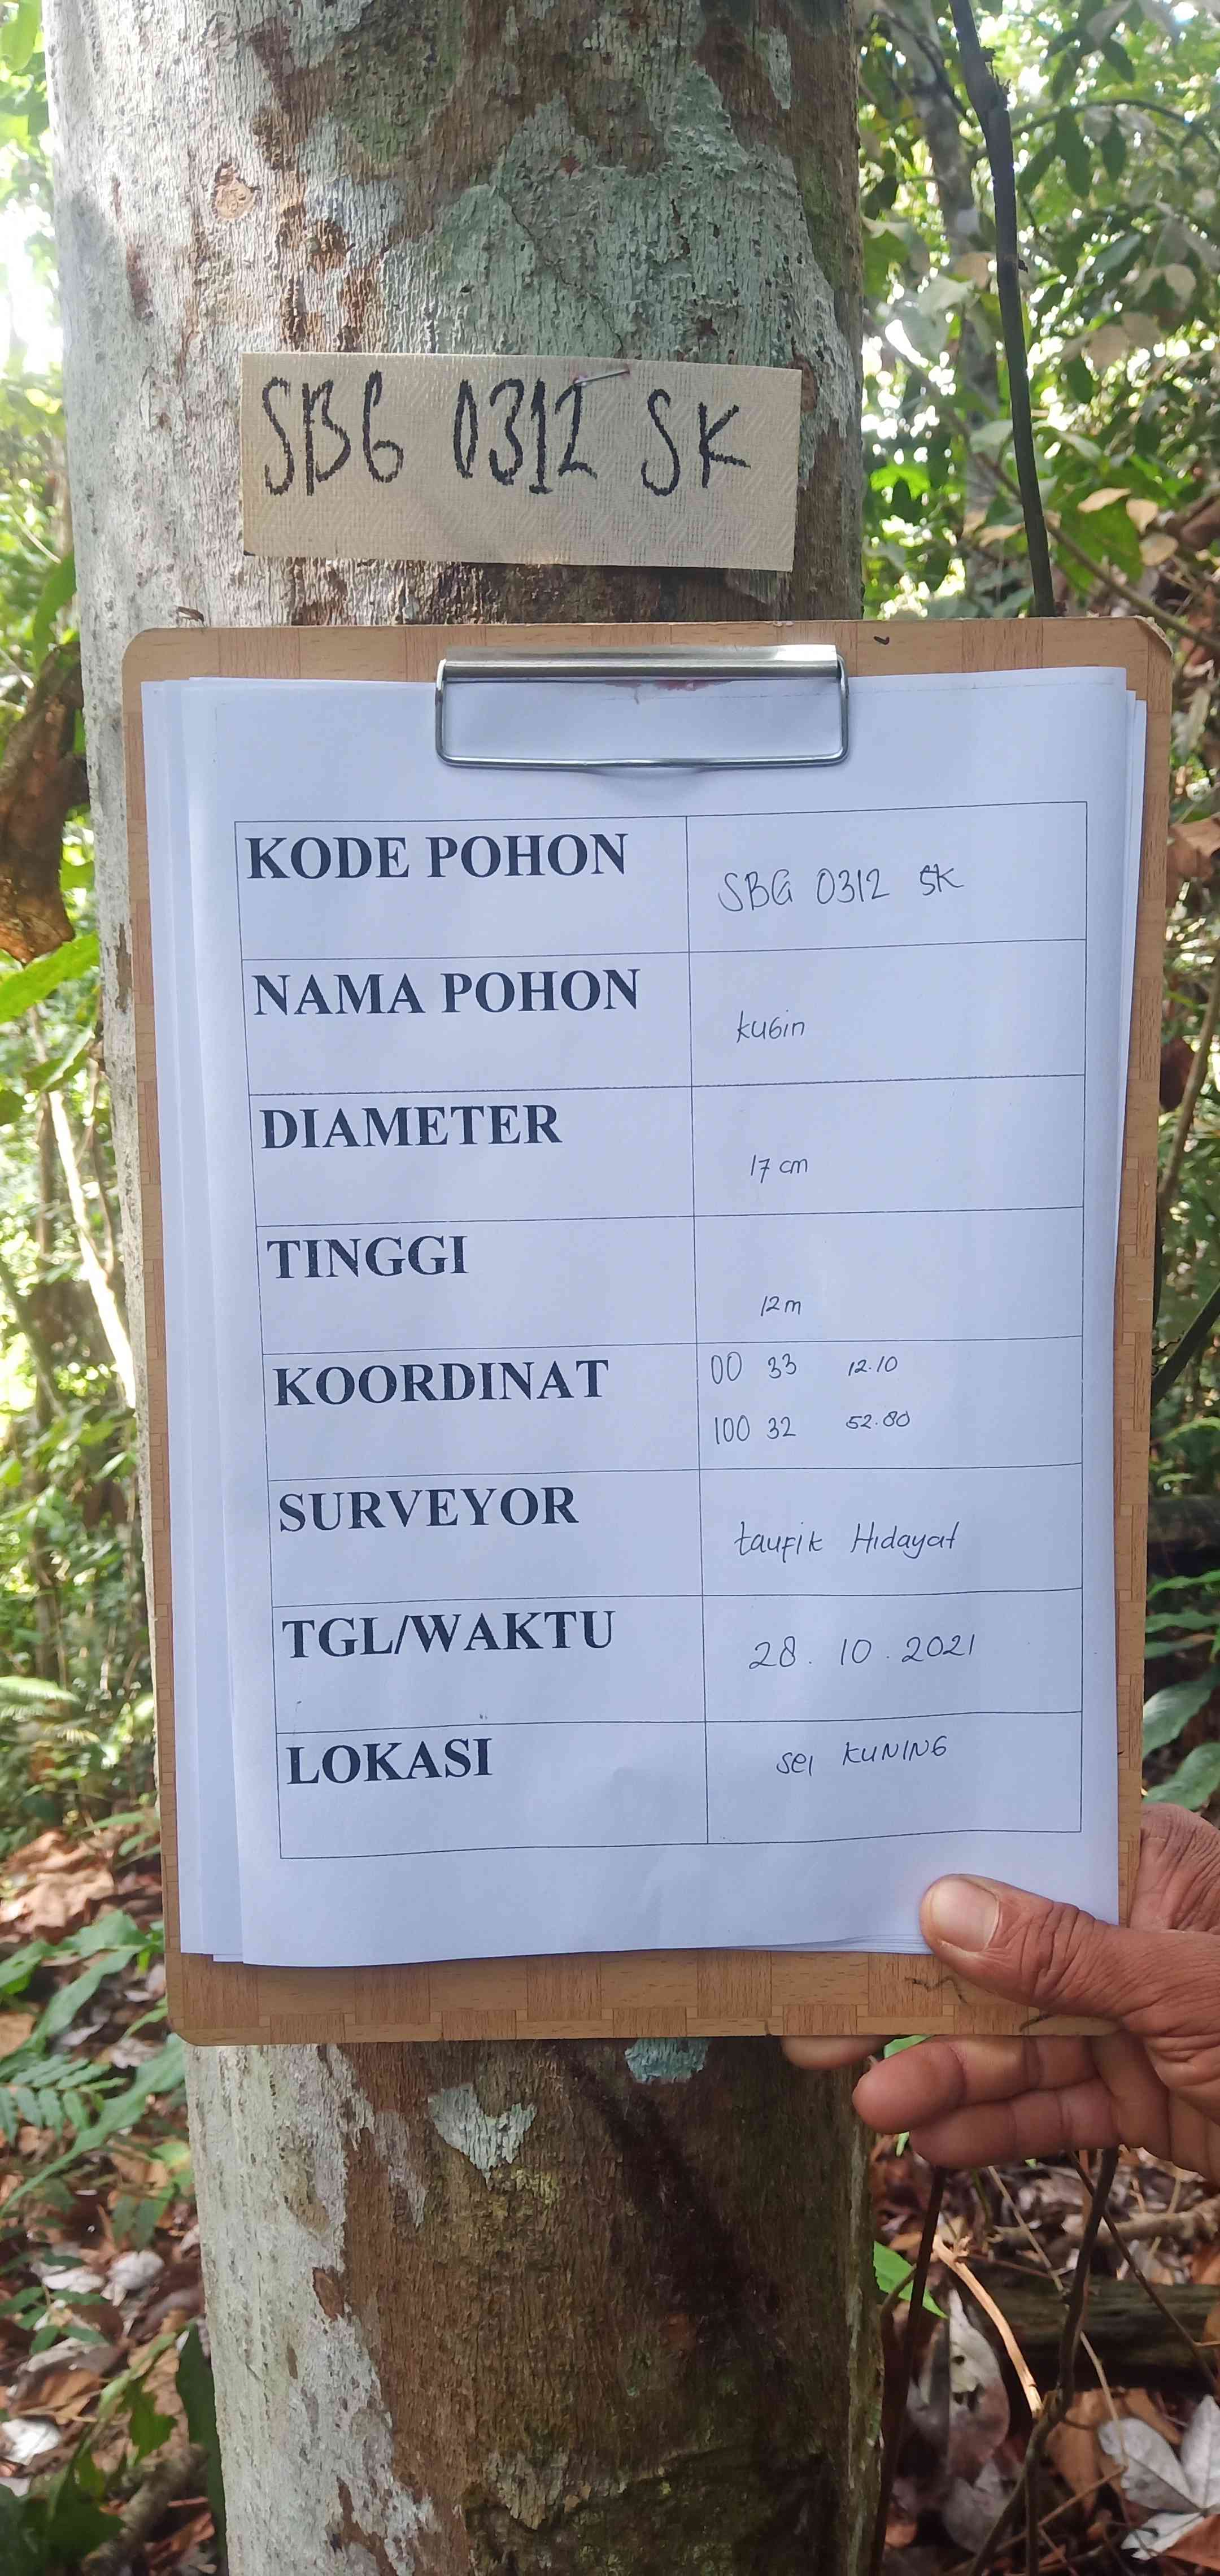 SBG 0312 SK
KODE POHON
SBG 0312 SK
NAMA POHON
kubin
DIAMETER
17 cm
TINGGI
12 m
KOORDINAT
00 33 12.10
100 32 52.80
SURVEYOR
taufik Hidayat
TGL/WAKTU
28. 10. 2021
LOKASI
sei KUNING